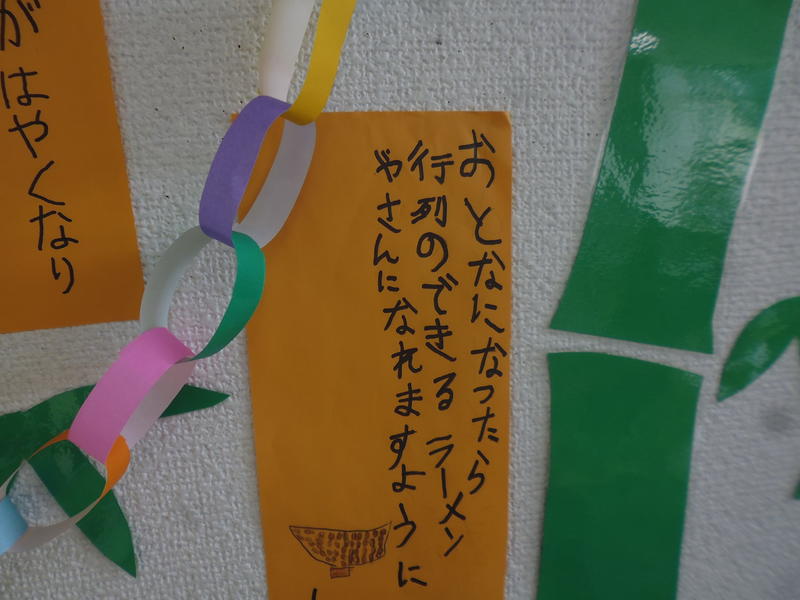 おとなになったら
行列のできるラーメン
やさんになれますように
がはやくなり